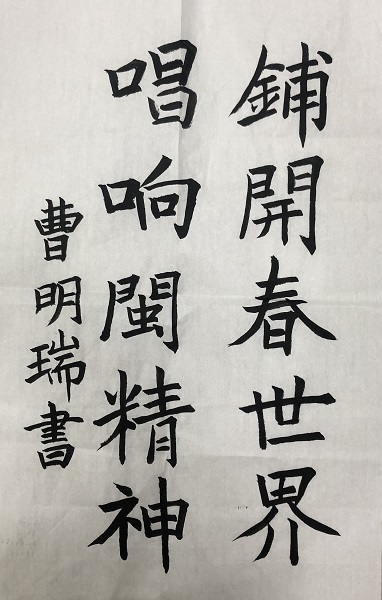 鋪開春世界
唱响閩精神
曹明瑞書